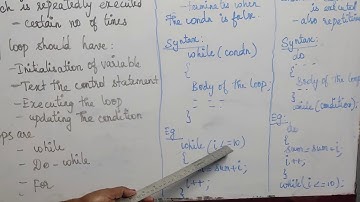 which is repeatedly executed
- certain no of times
loop should have:
- Initialisation of variable
- Test the control statement
- Executing the loop
- updating the condition
- while
- Do - while
- For
when
The condn is false.
Syntax:
while (condn)
{
Body of the loop;
}
Eg
while (i <= 10)
{
sum + i;
i++;
}
is executed
- also
Syntax:
do
{
Body of the loop;
}
while (condition);
Eg:
do
{
sum = sum + i;
i++;
}
while (i <= 10);